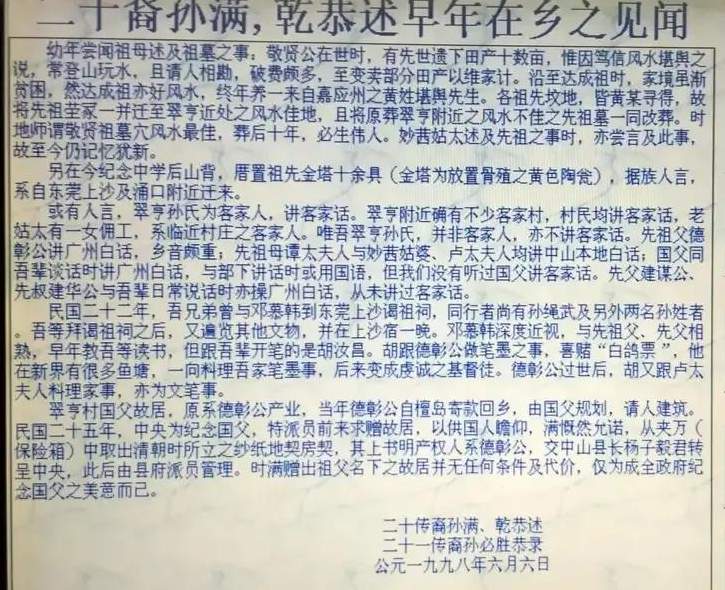 二十裔孙满，乾恭述早年在乡之见闻
幼年尝闻祖母述及祖墓之事：敬贤公在世时，有先世遗下田产十数亩，惟因笃信风水堪舆之
说，常登山玩水，且请人相勘，破费颇多，至变卖部分田产以维家计。沿至达成祖时，家境虽渐
贫困，然达成祖亦好风水，终年养一来自嘉应州之黄姓堪舆先生。各祖先坟地，皆黄某寻得，故
将先祖茔冢一并迁至翠亨近处之风水佳地，且将原葬翠亨附近之风水不佳之先祖墓一同改葬。时
地师谓敬贤祖墓穴风水最佳，葬后十年，必生伟人。妙茜姑太述及先祖之事时，亦尝言及此事，
故至今仍记忆犹新。
另在今纪念中学后山背，厝置祖先金塔十余具（金塔为放置骨殖之黄色陶瓮），据族人言，
系自东莞上沙及涌口附近迁来。
或有人言，翠亨孙氏为客家人，讲客家话。翠亨附近确有不少客家村，村民均讲客家话，老
姑太有一女佣工，系临近村庄之客家人。唯吾翠亨孙氏，并非客家人，亦不讲客家话。先祖父德
彰公讲广州白话，乡音颇重；先祖母谭太夫人与妙茜姑婆、卢太夫人均讲中山本地白话；国父同
吾辈谈话时讲广州白话，与部下讲话时或用国语，但我们没有听过国父讲客家话。先父建谋公、
先权建华公与吾辈日常说话时亦操广州白话，从未讲过客家话。
民国二十二年，吾兄弟曾与邓慕韩到东莞上沙谒祖祠，同行者尚有孙绳武及另外两名孙姓者
。吾等拜谒祖祠之后，又遍览其他文物，并在上沙宿一晚。邓慕韩深度近视，与先祖父、先父相
熟，早年教吾等读书，但跟吾辈开笔的是胡汝昌。胡跟德彰公做笔墨之事，喜赌“白鸽票”，他
在新界有很多鱼塘，一向料理吾家笔墨事，后来变成虔诚之基督徒。德彰公过世后，胡又跟卢太
夫人料理家事，亦为文笔事。
翠亨村国父故居，原系德彰公产业，当年德彰公自檀岛寄款回乡，由国父规划，请人建筑。
民国二十五年，中央为纪念国父，特派员前来求赠故居，以供国人瞻仰，满慨然允诺，从夹万（
保险箱）中取出清朝时所立之纱纸地契房契，其上书明产权人系德彰公，交中山县长杨子毅君转
呈中央，此后由县府派员管理。时满赠出祖父名下之故居并无任何条件及代价，仅为成全政府纪
念国父之美意而已。
二十传裔孙满、乾恭述
二十一传裔孙必胜恭录
公元一九九八年六月六日